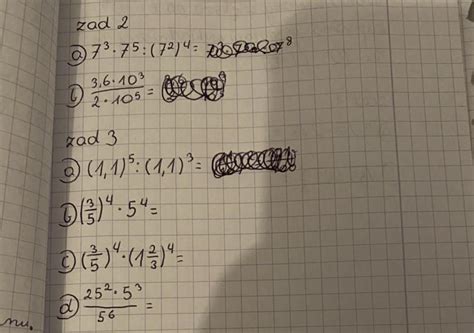 zad 2
a) 7³·7⁵:(7²)⁴=
b) 3,6·10³ / 2·10⁵ =
zad 3
a) (1,1)⁵:(1,1)³=
b) (3/5)⁴·5⁴=
c) (3/5)⁴·(1 2/3)⁴=
d) 25²·5³ / 5⁶ =